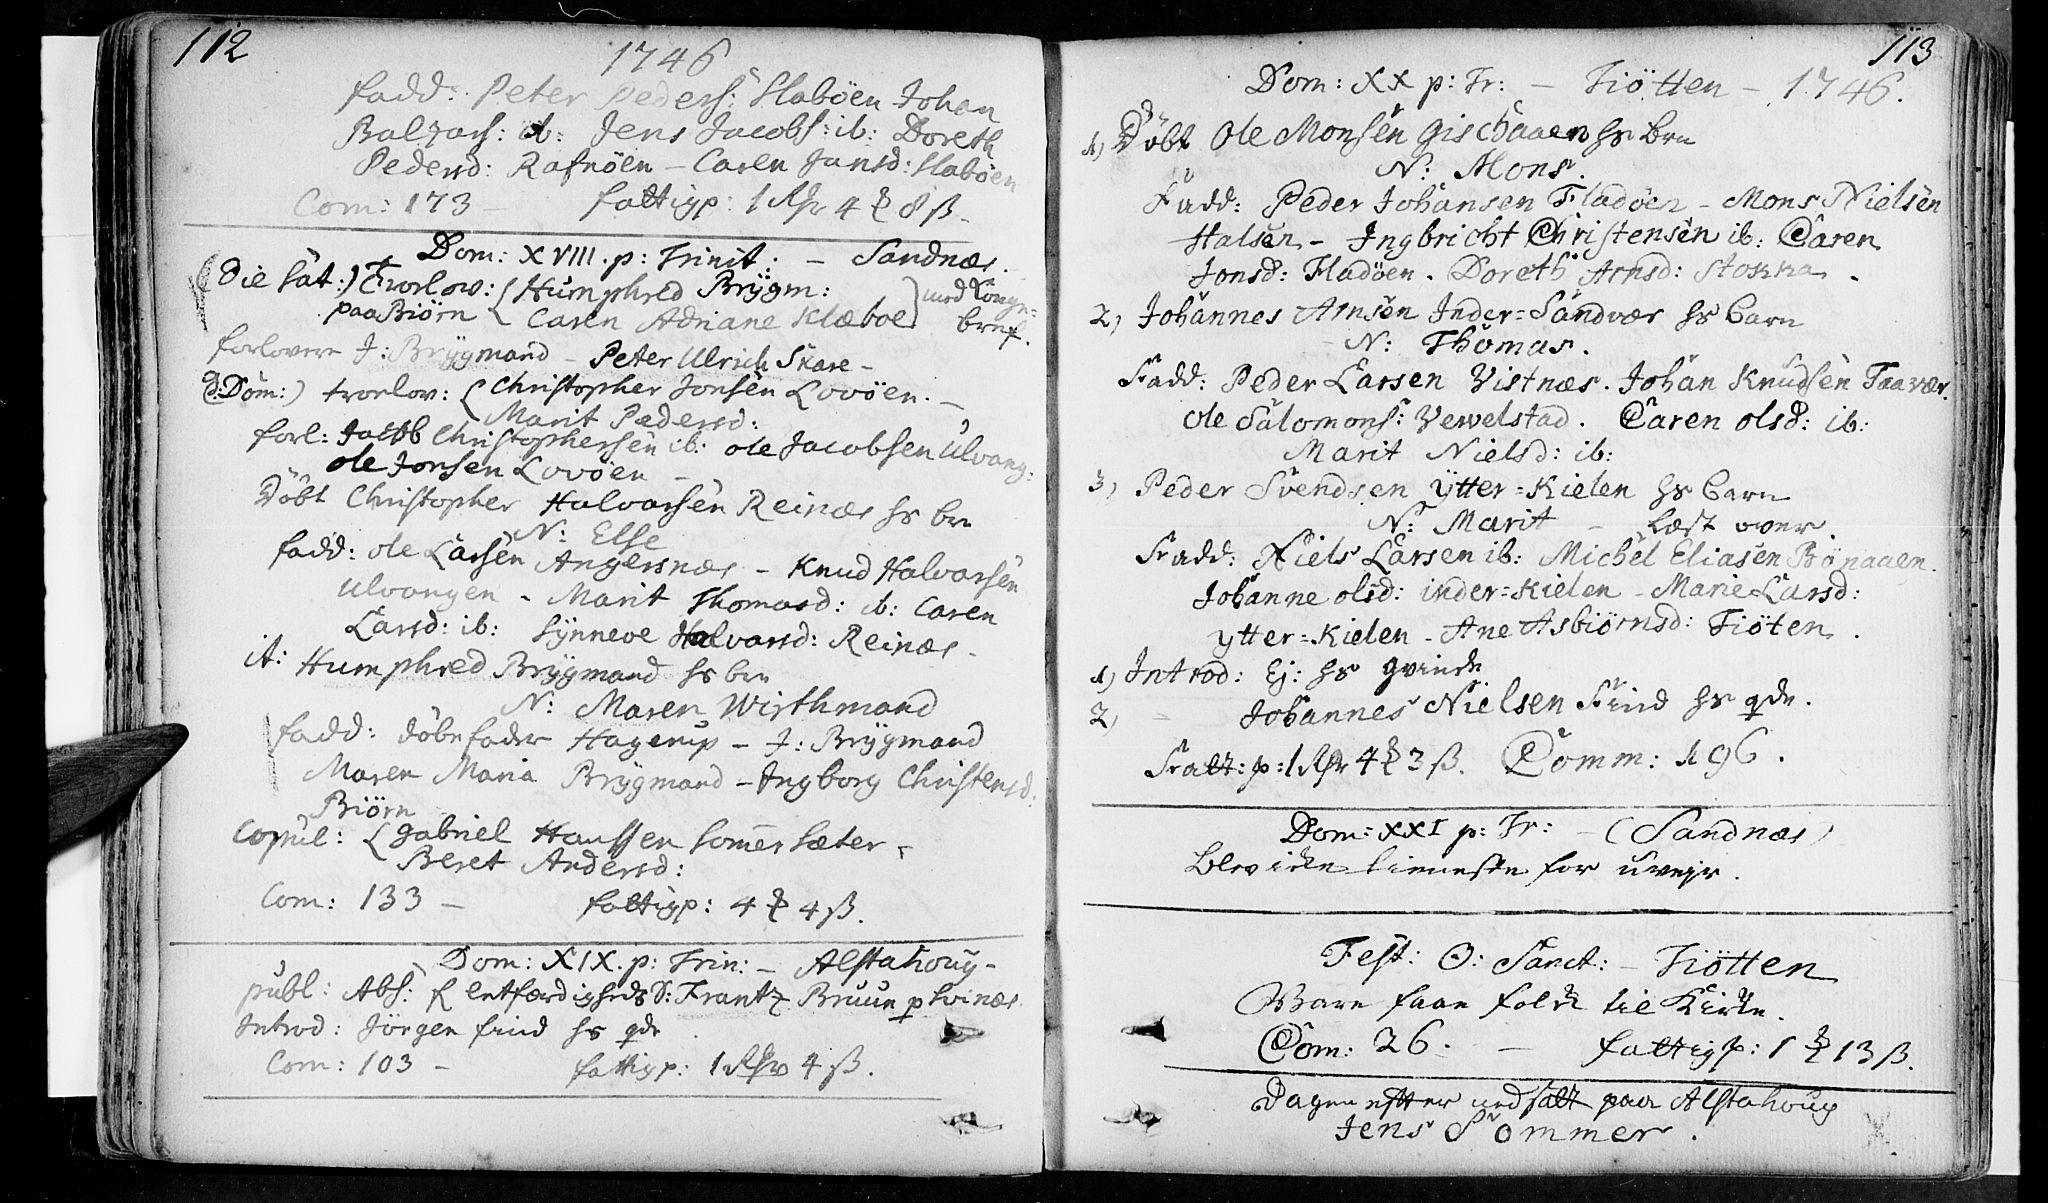 112
1746
fadd: Peter Peders: Slabøen Johan
Baltzars: ib: Jens Jacobs: ib: Doreth
Pedersd: Rafnøen – Caren Jansd: Slabøen
Com: 173 – fattigp: 1 Rdr 4 ₰ 8 ß –
Dom: XVIII. p: Trinit: – Sandnæs.
(die Sat:) Trorlov: { Humphred Brÿgm: } med Konge=
paa Biörn { Caren Adriane Klæboe } bref.
forlovere J: Brÿgmand – Peter Ulrich Skare –
d: Dom:) trorlov: { Christopher Jonsen Lovöen. –
Marit Pædersd:
forl: Jacob Christophersen ib: ole Jacobsen Ulvang:
ole Jonsen Lovöen –
Döbt Christopher Halvorsen Reinæs hs brn
N: Else
fadd: ole Larsen Angersnæs – Knud Halvorsen
Ulvangen – Marit Thomasd: ib: Caren
Larsd: ib: Sÿnneve Halvorsd: Reinæs –
it: Humphred Brÿgmand hs brn
N: Maren Wirthmand
fadd: döbefader Hagerup – J: Brÿgmand
Maren Maria Brÿgmand – Ingborg Christensd:
Biörn
Copul: { Gabriel Hanssen Somersæter
Beret Andersd:
Com: 133 – fattigp: 4 ₰ 4 ß.
Dom: XIX. p: Trin: – Alstahoug –
publ: Abs: f letfærdigheds S: Frantz Bruun p Svinæs
Introd: Jörgen find hs qde
Com: 103 – fattigp: 1 Rdr 4 ß.
113
Dom: XX p: Tr: – Tiötten – 1746.
1) Döbt Ole Monsen Gischaaen hs brn
N: Mons.
Fadd: Peder Johansen Fladöen – Mons Nielsen
Halsen – Ingbricht Christensen ib: Caren
Jonsd: Fladöen. Doreth Arnsd: Stokka.
2) Johannes Arnsen Inder=Sandvær hs barn
N: Thomas.
Fadd: Peder Larsen Vistnæs. Johan Knudsen Taavær.
Ole Salomons: Vevelstad. Caren olsd: ib:
Marit Nielsd: ib:
3) Peder Svendsen Ytter=Kielen hs barn
N: Marit – læst over.
Fadd: Niels Larsen ib: Michel Eliasen Bönaaen.
Johanne olsd: inder=Kielen – Marie Larsd:
ytter=Kielen – Ane Asbiörnsd: Tiöten.
1) Introd: Ej: hs qvinde
2) – Johannes Nielsen Find hs qde.
Fatt: p: 1 Rdr 4 ₰ 3 ß. Comm: 196.
Dom: XXI p: Tr: – (Sandnæs)
Blev ikke tieneste for uvejr.
Fest: O: Sanct: – Tiötten
Vare faae folk til Kirke.
Com: 26. – fattigp: 1 ₰ 13 ß.
Dagen efter nedsatt paa Alstahoug
Jens Sommer.